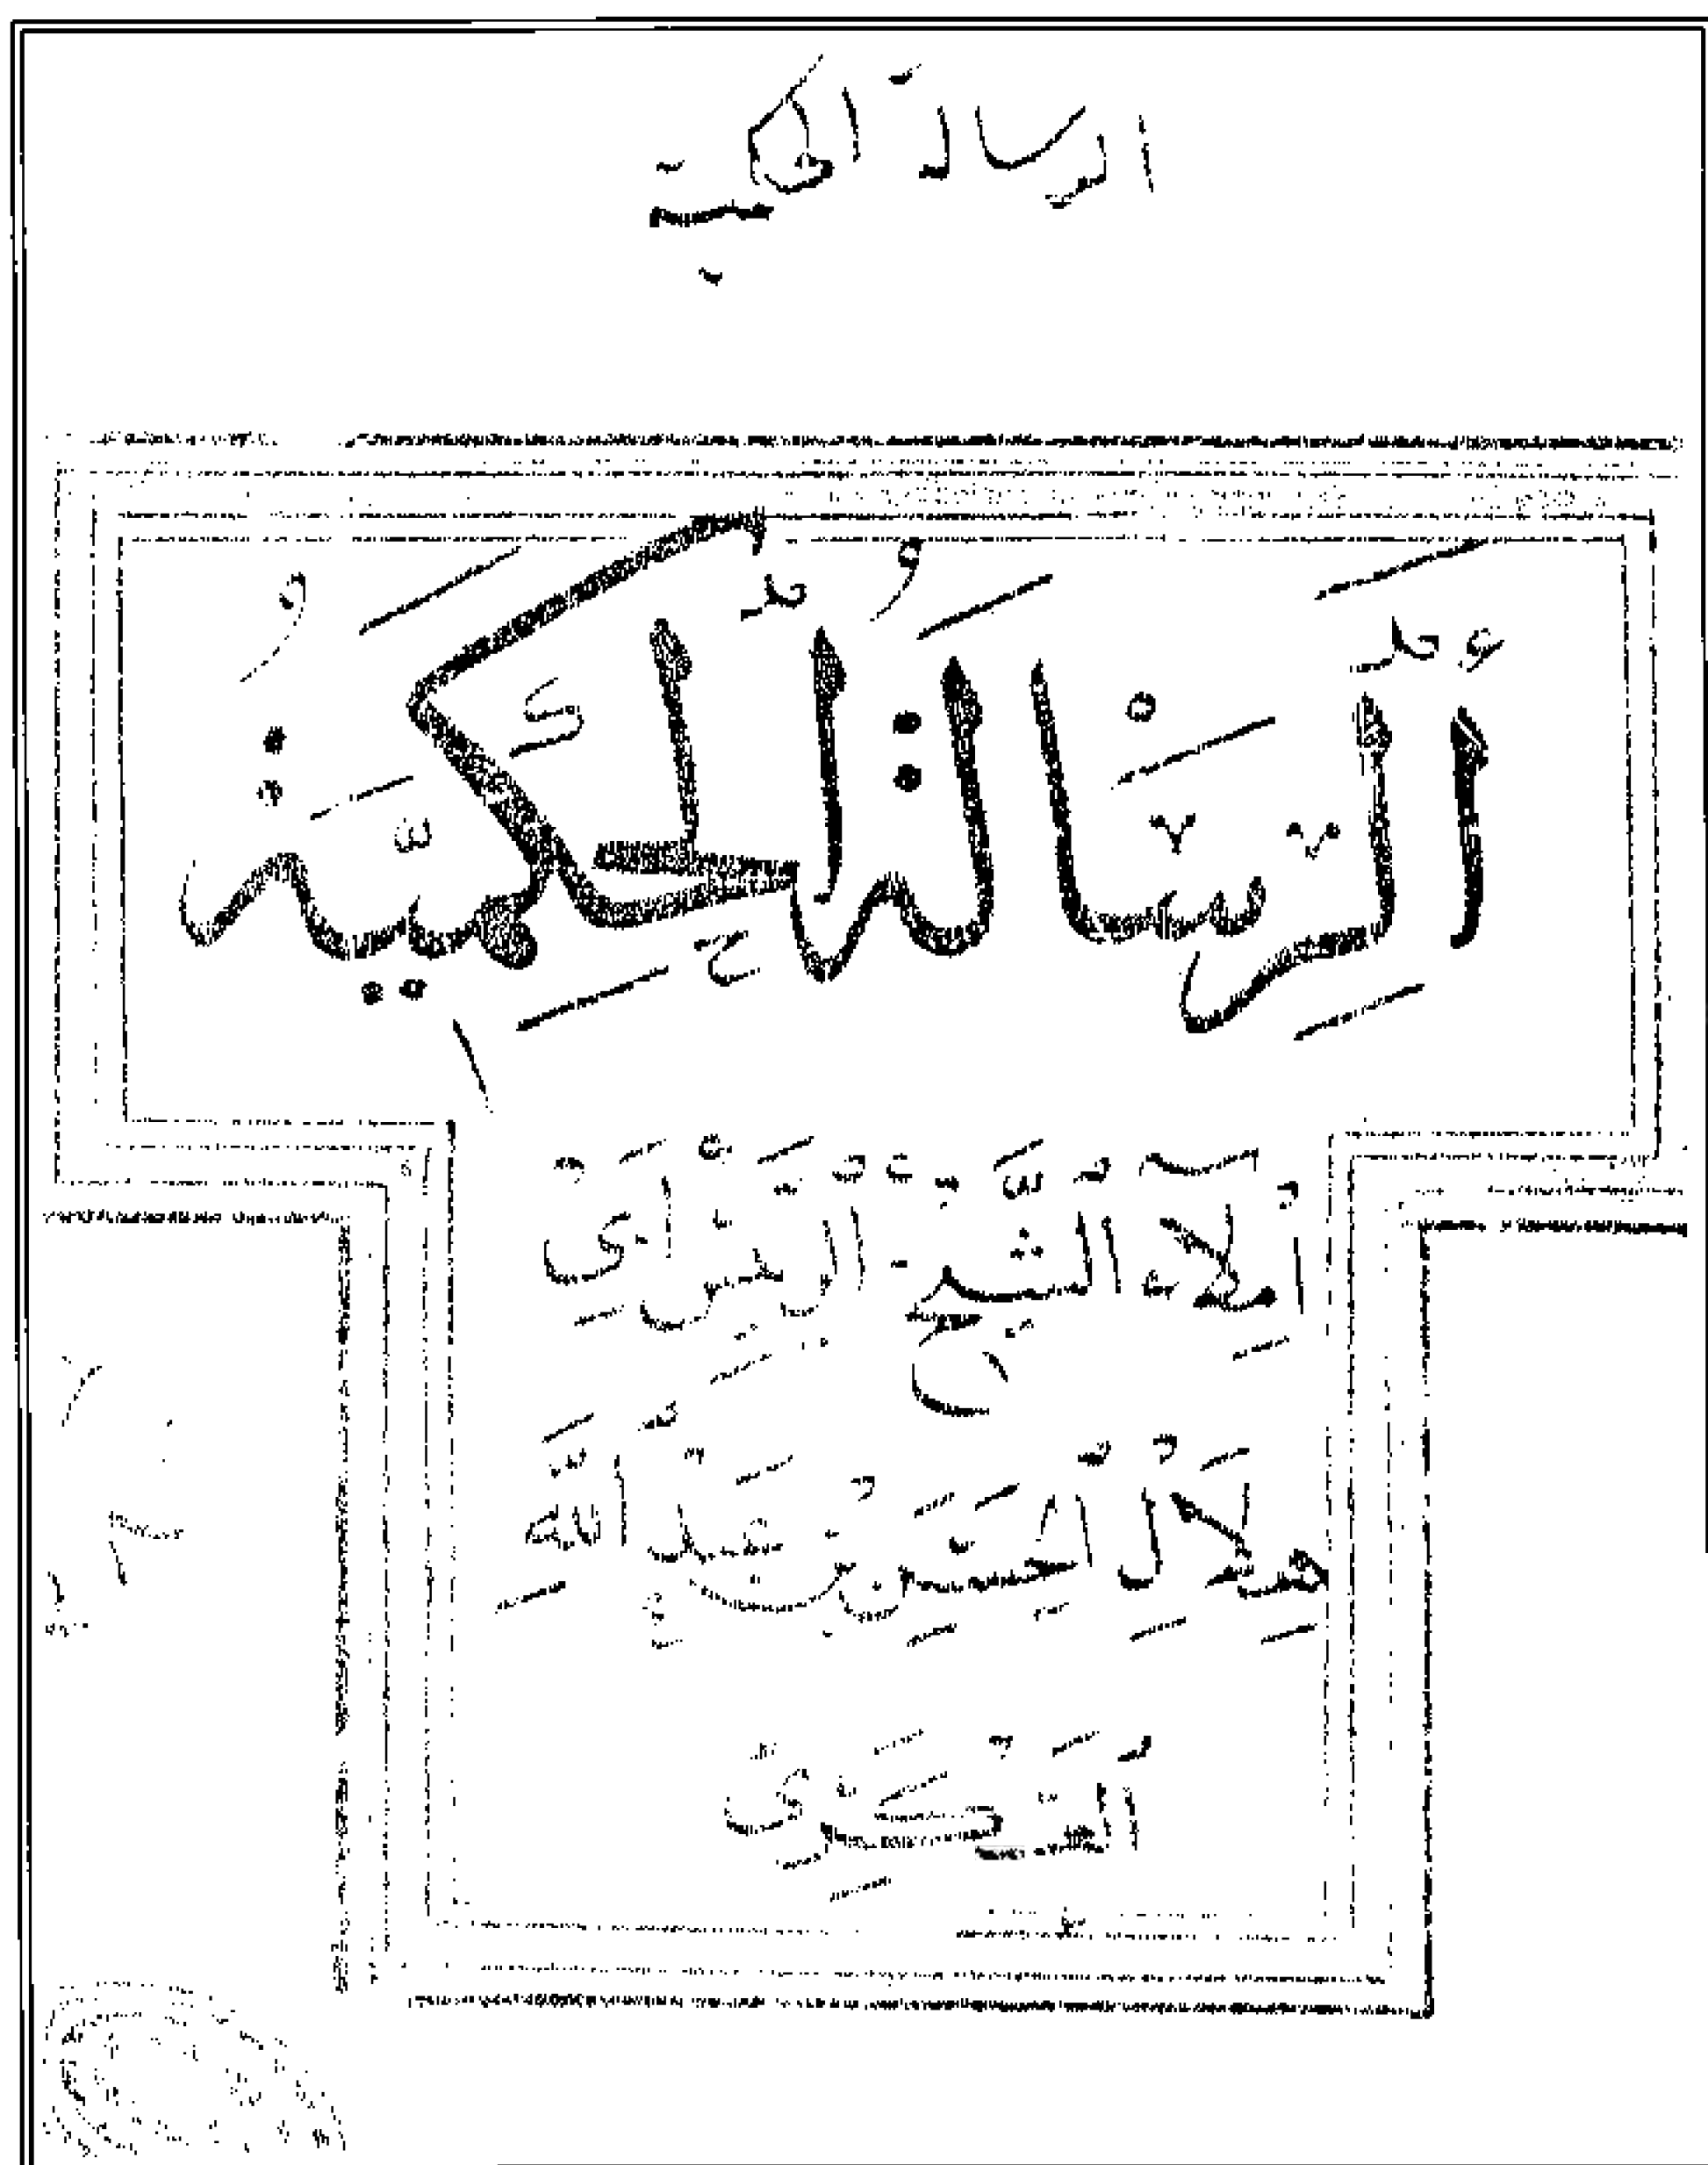 الرسالة الحكمية
الرِّسَالَةُ الْحُكْمِيَّةُ
أَمْلَاءُ الشَّيْخِ الرَّئِيسِ أَبِي
هِلَالٍ الْحَسَنِ بْنِ عَبْدِ اللَّهِ
الْعَسْكَرِيِّ